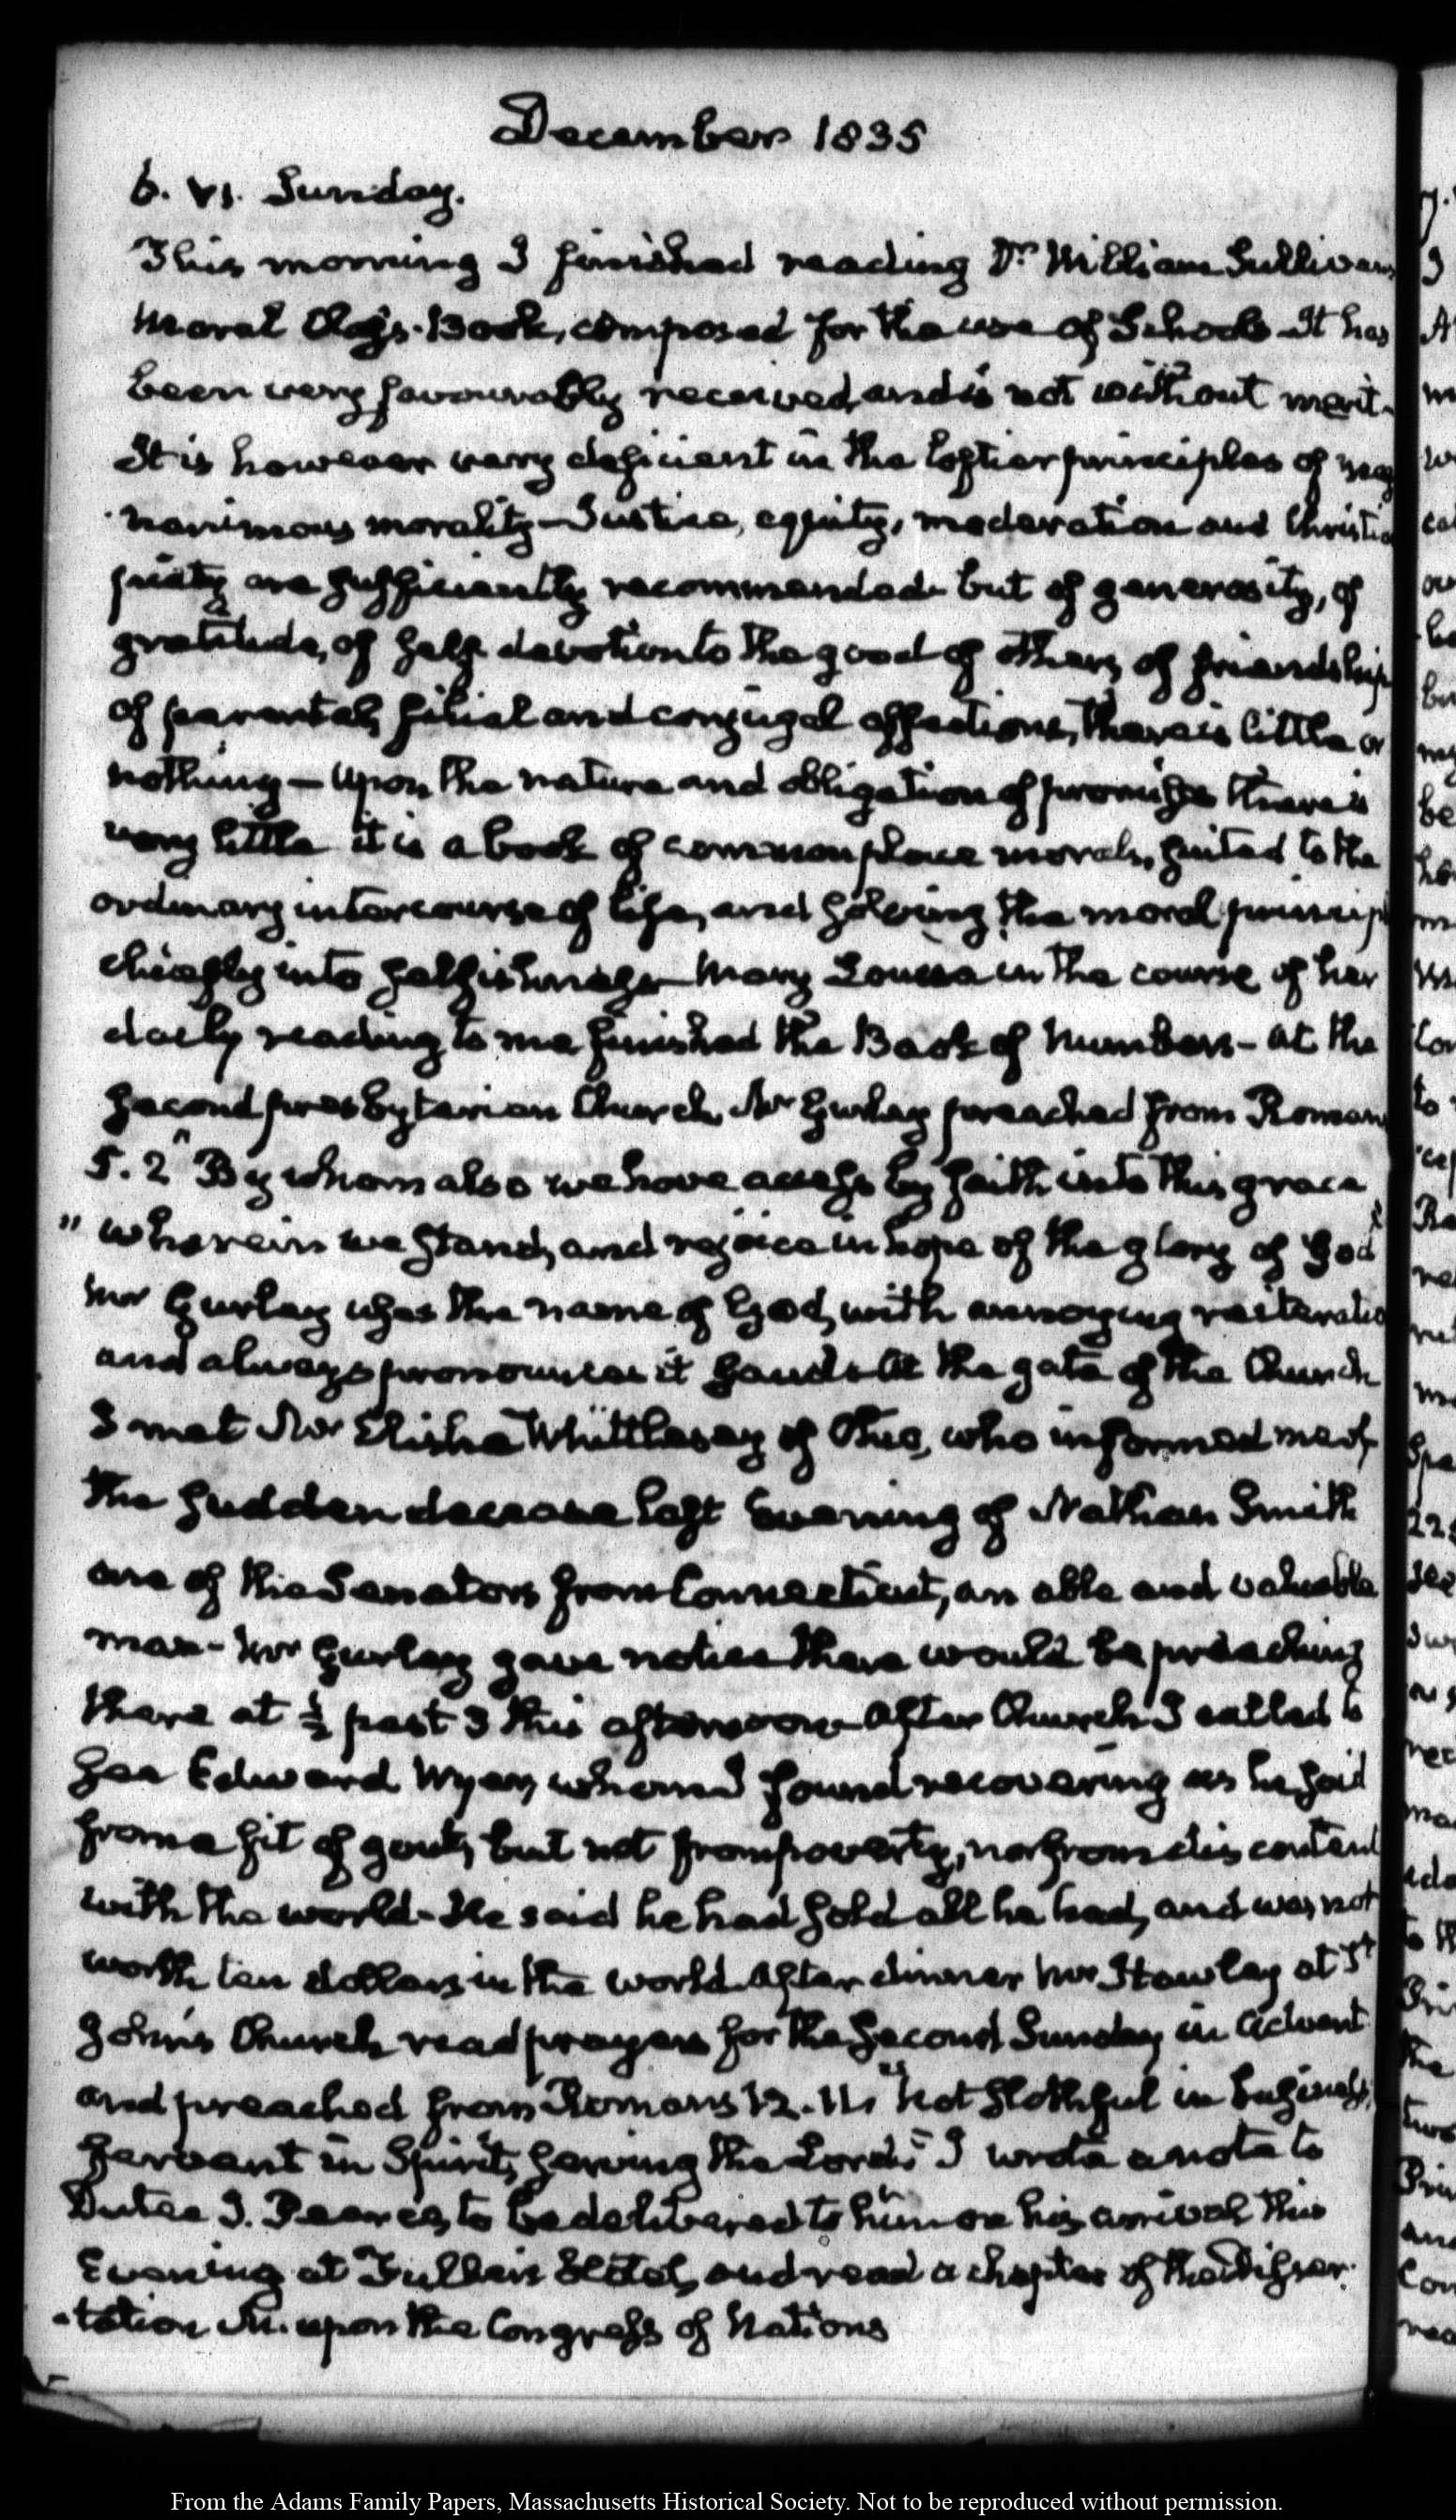 December 1835
6. VI. Sunday.
This morning I finished reading Dr. William Sullivan's
Moral Class-Book, composed for the use of Schools It has
been very favourably received, and is not without merit-
It is however very deficient in the loftier principles of mag
-nanimous morality- Justice, equity, moderation and Christia
piety are sufficiently recommended- but of generosity, of
gratitude, of self devotion to the good of others, of friendship
of parental, filial and conjugal affections, there is little or
nothing- Upon the nature and obligation of promises there is
very little it is a book of common place morals, suited to the
ordinary intercourse of life, and solving the moral princip
chiefly into selfishness- Mary Louisa in the course of her
daily reading to me finished the Book of Numbers- At the
Second presbyterian Church, Mr Gurley preached from Romans
5. 2 "By whom also we have access by faith into this grace
" wherein we stand, and rejoice in hope of the glory of God"
Mr Gurley uses the name of God, with annoying reiteratio
and always pronounces it Gaud- At the gate of the Church
I met Mr Elisha Whittlesey of Ohio, who informed me of
the sudden decease last Evening of Nathan Smith
one of the Senators from Connecticut, an able and valuable
man- Mr Gurley gave notice there would be preaching
there at ½ past 3 this afternoon- After Church I called to
see Edward Wyer, whom I found recovering as he said
from a fit of gout, but not from poverty, nor from discontent
with the world- He said he had sold all he had, and was not
worth ten dollars in the world. After dinner Mr Hawley at St
John's Church read prayers for the Second Sunday in Advent
and preached from Romans 12. 11. "Not slothful in business,
fervent in Spirit, serving the Lord." I wrote a note to
Dutee J. Pearce, to be delivered to him on his arrival this
Evening at Fuller's Hotel, and read a chapter of the Disser-
-tation M. upon the Congress of Nations
From the Adams Family Papers, Massachusetts Historical Society. Not to be reproduced without permission.